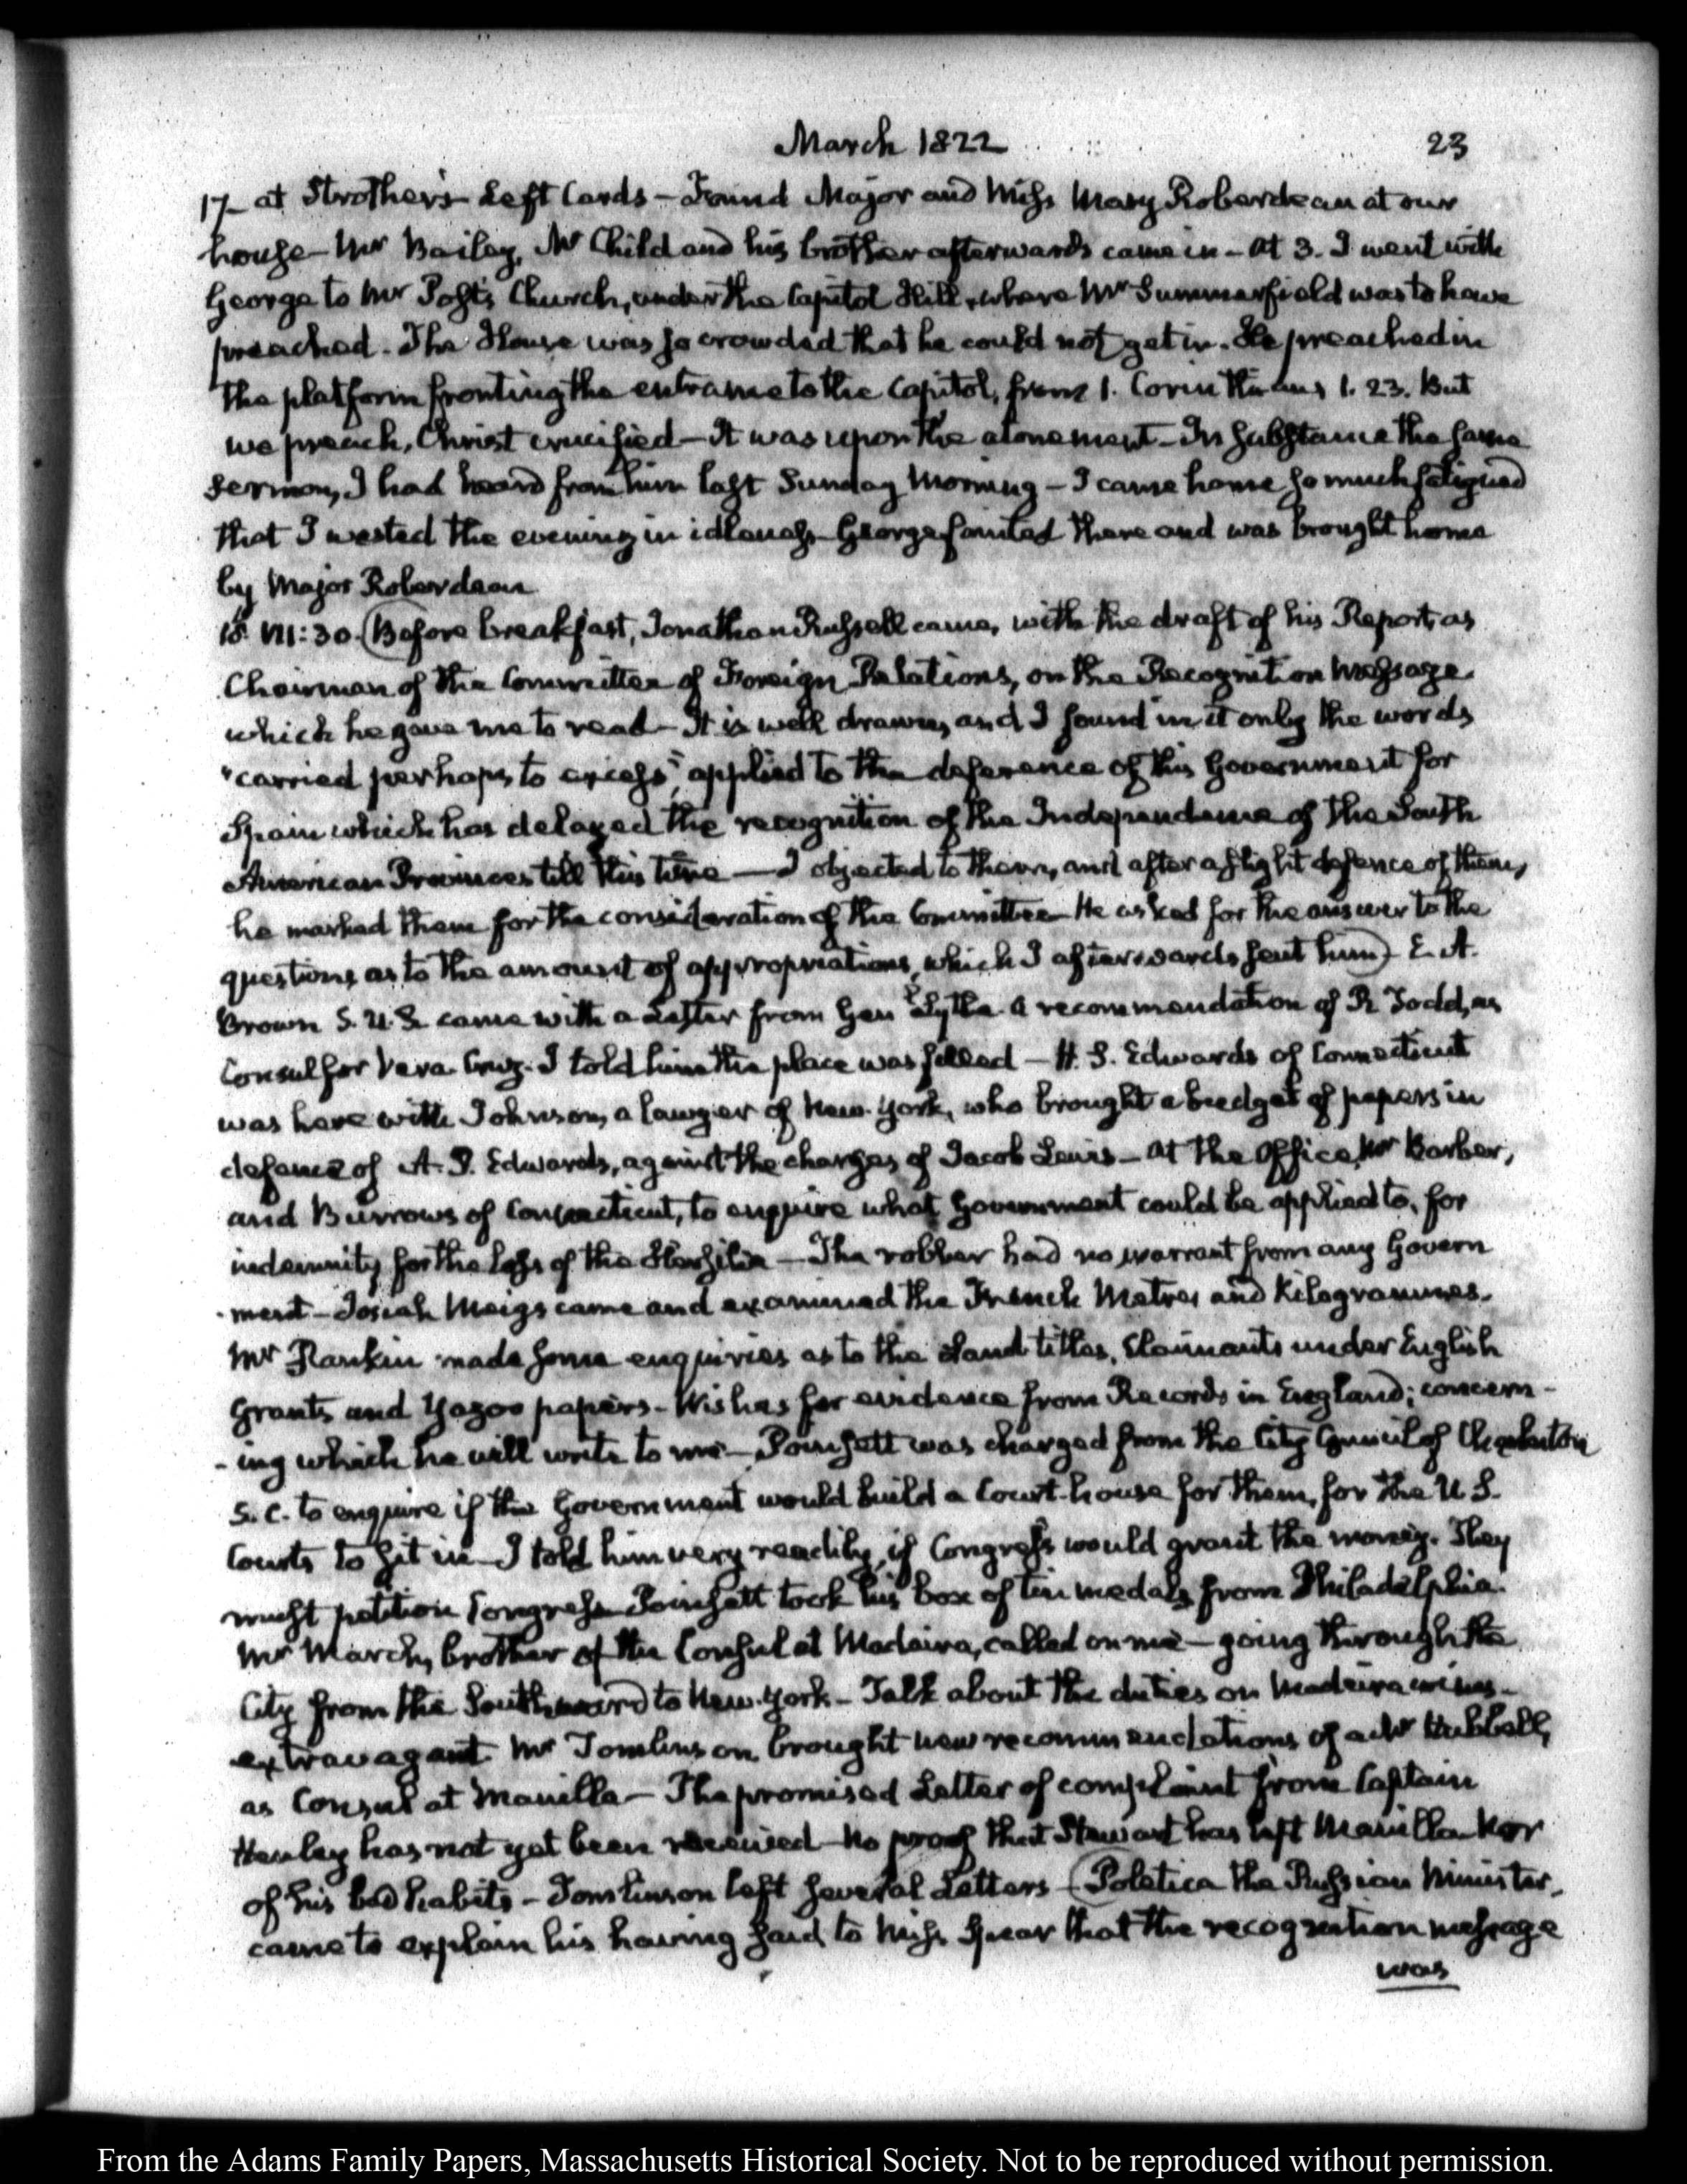 March 1822
23
17 at Strother's Left Cards – Found Major and Miss Mary Roberdeau at our
house – Mr Bailey, Mr Child and his brother afterwards came in – At 3. I went with
George to Mr Post's Church, under the Capitol Hill, where Mr Summerfield was to have
preached. The House was so crowded that he could not get in. He preached in
the platform fronting the entrance to the Capitol, from 1. Corinthians 1. 23. But
we preach, Christ crucified – It was upon the atonement – In substance the same
sermon, I had heard from him last Sunday Morning – I came home so much fatigued
that I wasted the evening in idleness – George fainted there and was brought home
by Major Roberdeau
18. VII:30. (Before breakfast, Jonathan Russell came, with the draft of his Report as
Chairman of the Committee of Foreign Relations, on the Recognition Message
which he gave me to read – It is well drawn, and I found in it only the words
"carried perhaps to excess," applied to the deference of this Government for
Spain which has delayed the recognition of the Independence of the South
American Provinces till this time — I objected to them, and after a slight defence of them,
he marked them for the consideration of the Committee – He asked for the answer to the
questions as to the amount of appropriations, which I afterwards sent him) – E. A.
Brown S. U. S. came with a Letter from Genl Lytle. a recommendation of R Todd, as
Consul for Vera Cruz. I told him the place was filled – H. S. Edwards of Connecticut
was here with Johnson, a lawyer of New-York, who brought a budget of papers in
defence of A. P. Edwards, against the charges of Jacob Lewis – At the Office, Mr Barber,
and Burrows of Connecticut, to enquire what Government could be applied to, for
indemnity for the loss of the Hersilia – The robber had no warrant from any Govern
-ment – Josiah Meigs came and examined the French Metres and Kilogrammes.
Mr Rankin made some enquiries as to the Land titles, Claimants under English
Grants and Yazoo papers – Wishes for evidence from Records in England; concern-
-ing which he will write to me – Poinsett was charged from the City Council of Charleston
S. C. to enquire if the Government would build a Court-house for them, for the U. S.
Courts to sit in – I told him very readily, if Congress would grant the money. They
must petition Congress – Poinsett took his box of tin medals from Philadelphia.
Mr March, brother of the Consul at Madeira, called on me – going through the
City from the Southward to New-York – Talk about the duties on Madeira wines –
extravagant. Mr Tomlinson brought new recommendations of a Mr Hubbell,
as Consul at Manilla – The promised Letter of complaint from Captain
Henley has not yet been received – No proof that Stewart has left Manilla – Nor
of his bad habits – Tomlinson left several Letters – (Poletica the Russian Minister,
came to explain his having said to Miss Spear that the recognition message
was
From the Adams Family Papers, Massachusetts Historical Society. Not to be reproduced without permission.